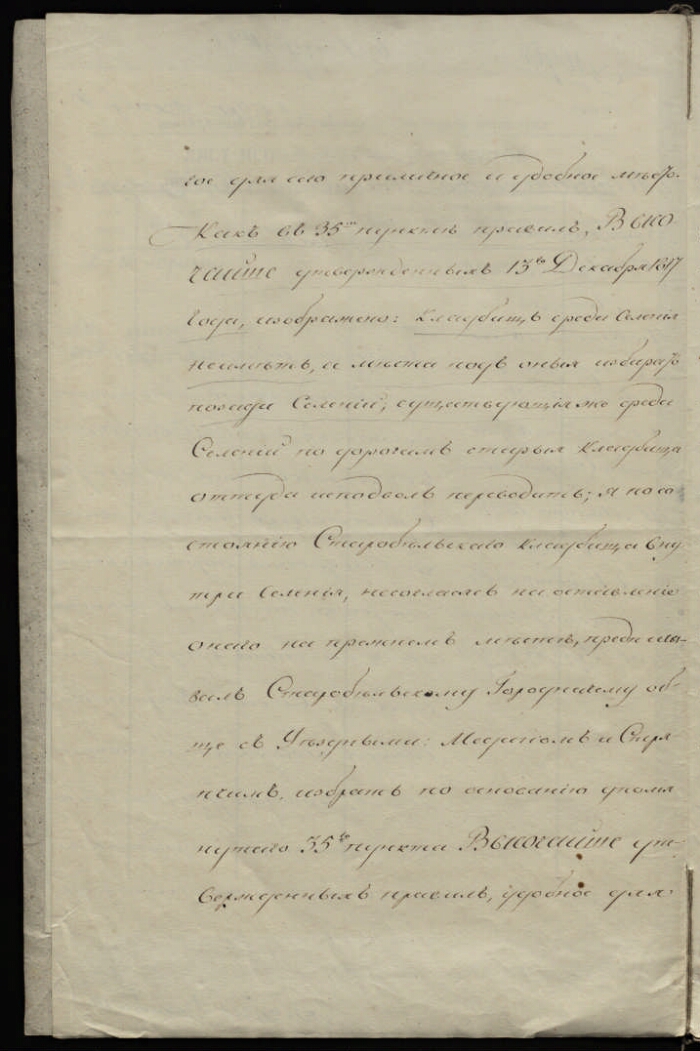 гое для сего приличное и удобное место.
Какъ въ 35м пункте правилъ, Высо
чайше утвержденныхъ 13го Декабря 1817
года, изображено: кладбищъ среди Селенiя
неиметь, а места подъ оныя избирать
позади Селенiй, существующiя же среди
Селенiй по дорогамъ старыя Кладбища
оттуда исподволь переводить; я по со
стоянiю Старобельскаго кладбища вну
три Селенiя, несогласясь на оставленiе
онаго на прежнемъ месте, предписы-
валъ Старобельскому Городничему об-
ще съ Уездными: Медикомъ и Стряп
чимъ, избрать по основанiю упомя
нутаго 35го пункта Высочайше ут
вержденныхъ правилъ, удобное для